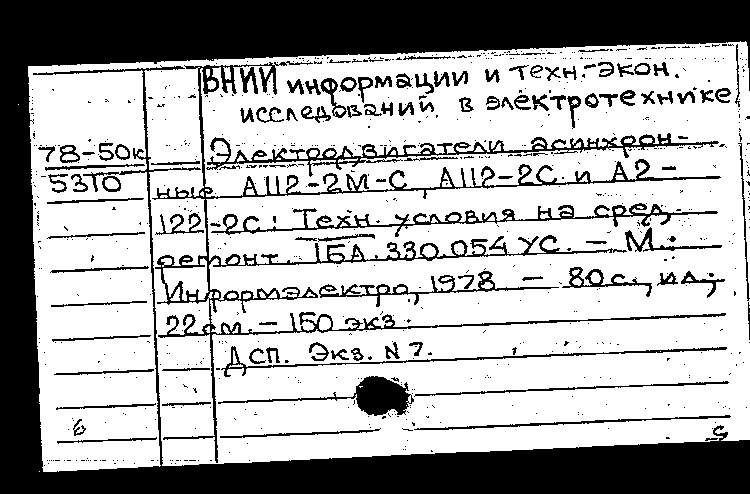 ВНИИ информации и техн.-экон.
исследований в электротехнике
78-50к Электродвигатели асинхрон-
53ТО ные А112-2М-С, А112-2С и А2-
122-2С: Техн. условия на сред.
ремонт. 1БА.330.054 УС. - М.:
Информэлектро, 1978 - 80 с., ил.;
22 см. - 150 экз.
ДСП. Экз. N 7.